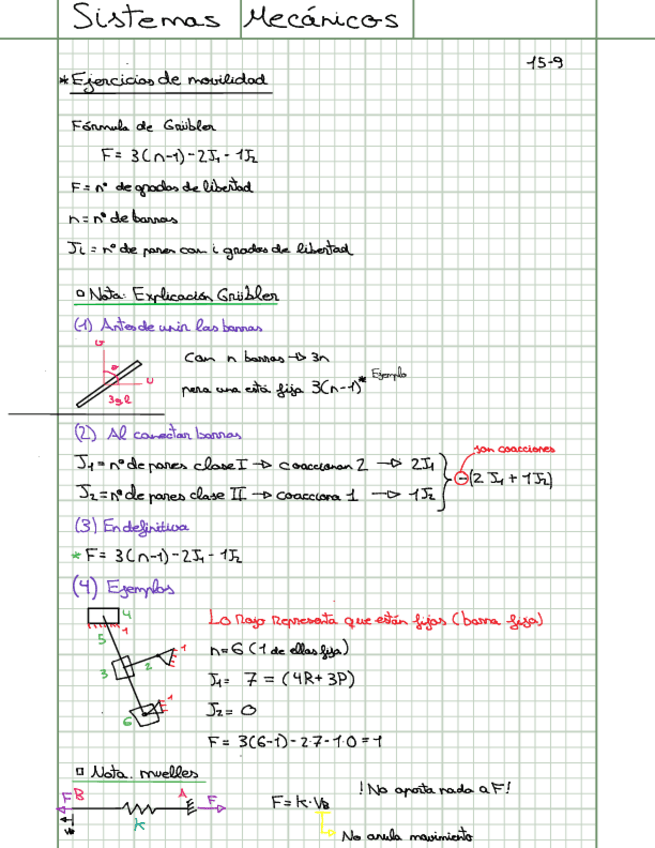 Sistemas Mecánicos
15-9
* Ejercicios de movilidad
Fórmula de Grübler
F = 3(n-1) - 2J₁ - 1J₂
F = nº de grados de libertad
n = nº de barras
Ji = nº de pares con i grados de libertad
Nota: Explicación Grübler
(1) Antes de unir las barras
v
θ
u
3gl
Con n barras → 3n
pero una está fija 3(n-1)* Ejemplo
(2) Al conectar barras
son coacciones
J₁ = nº de pares clase I → coaccionan 2 → 2J₁
J₂ = nº de pares clase II → coacciona 1 → 1J₂
-(2J₁ + 1J₂)
(3) En definitiva
* F = 3(n-1) - 2J₁ - 1J₂
(4) Ejemplos
4
1
5
3
2
1
6
1
Lo Rojo Representa que están fijos (barra fija)
n = 6 (1 de ellas fija)
J₁ = 7 = (4R + 3P)
J₂ = 0
F = 3(6-1) - 2·7 - 1·0 = 1
Nota. muelles
F B
A
F
k
v_B
F = k · v_B
! No aporta nada a F!
No anula movimiento